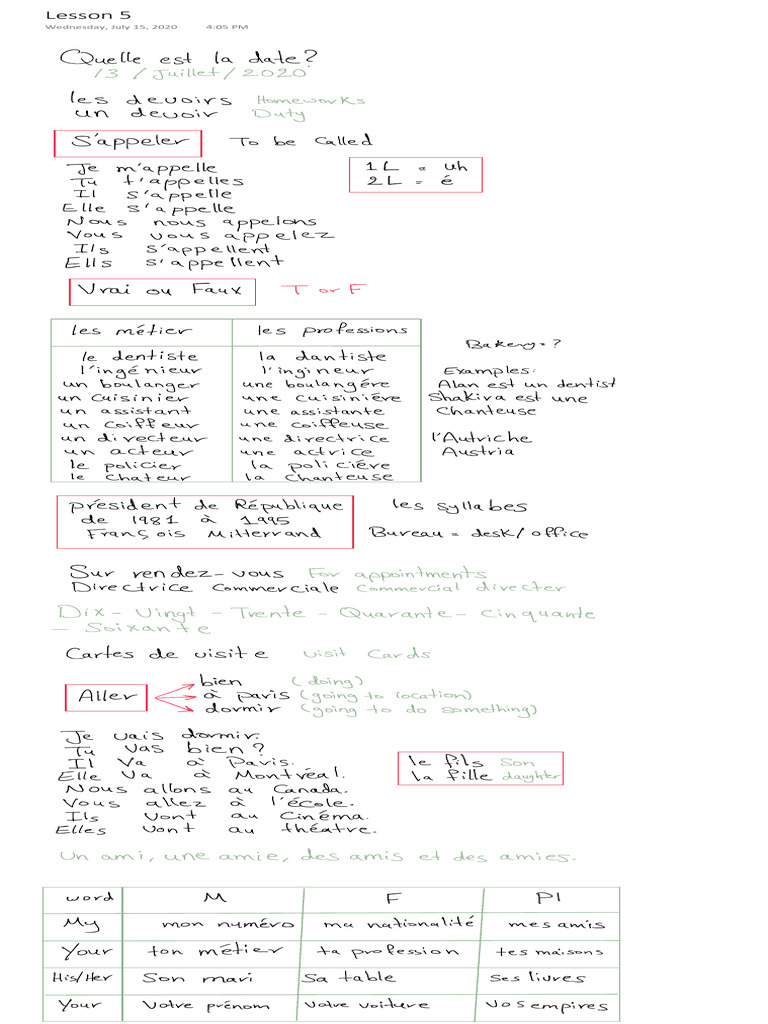 Lesson 5
Wednesday, July 15, 2020 4:05 PM
Quelle est la date?
13 / Juillet / 2020
les devoirs Homeworks
un devoir Duty
S'appeler To be Called
Je m'appelle
Tu t'appelles
Il s'appelle
Elle s'appelle
Nous nous appelons
Vous vous appelez
Ils s'appellent
Ells s'appellent
1 L = uh
2 L = é
Vrai ou Faux T or F
les métier les professions
le dentiste la dantiste
l'ingénieur l'ingineur
un boulanger une boulangére
un cuisinier une cuisiniére
un assistant une assistante
un coiffeur une coiffeuse
un directeur une directrice
un acteur une actrice
le policier la policiére
le chateur la chanteuse
Bakery = ?
Examples:
Alan est un dentist
Shakira est une
Chanteuse
l'Autriche
Austria
président de République
de 1981 à 1995
François Mitterrand
les syllabes
Bureau = desk/office
Sur rendez-vous For appointments
Directrice Commerciale Commercial directer
Dix - Vingt - Trente - Quarante - cinquante
- Soixante
Cartes de visite visit Cards
Aller
bien (doing)
à paris (going to location)
dormir (going to do something)
Je vais dormir.
Tu vas bien?
Il Va à Paris.
Elle Va à Montréal.
Nous allons au Canada.
Vous allez à l'école.
Ils vont au Cinéma.
Elles vont au théatre.
le fils Son
la fille daughter
Un ami, une amie, des amis et des amies.
word M F Pl
My mon numéro ma nationalité mes amis
Your ton métier ta profession tes maisons
His/Her Son mari Sa table Ses livres
Your Votre prénom Votre voiture Vos empires